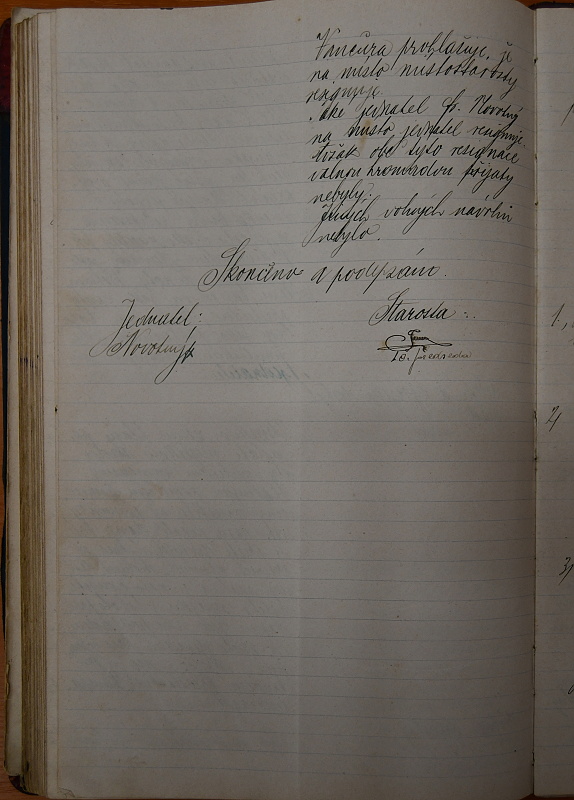 Vincura prohlašuje, že
na místo místostarosty
resignuje.
Také jednatel Fr. Novotný
na místo jednatel resignuje
však obě tyto resignace
valnou hromadou přijaty
nebyly.
Jiných volných návrhů
nebylo.
Skončeno a podepsáno.
Jednatel: Starosta:
Novotný
1,
2,
3,